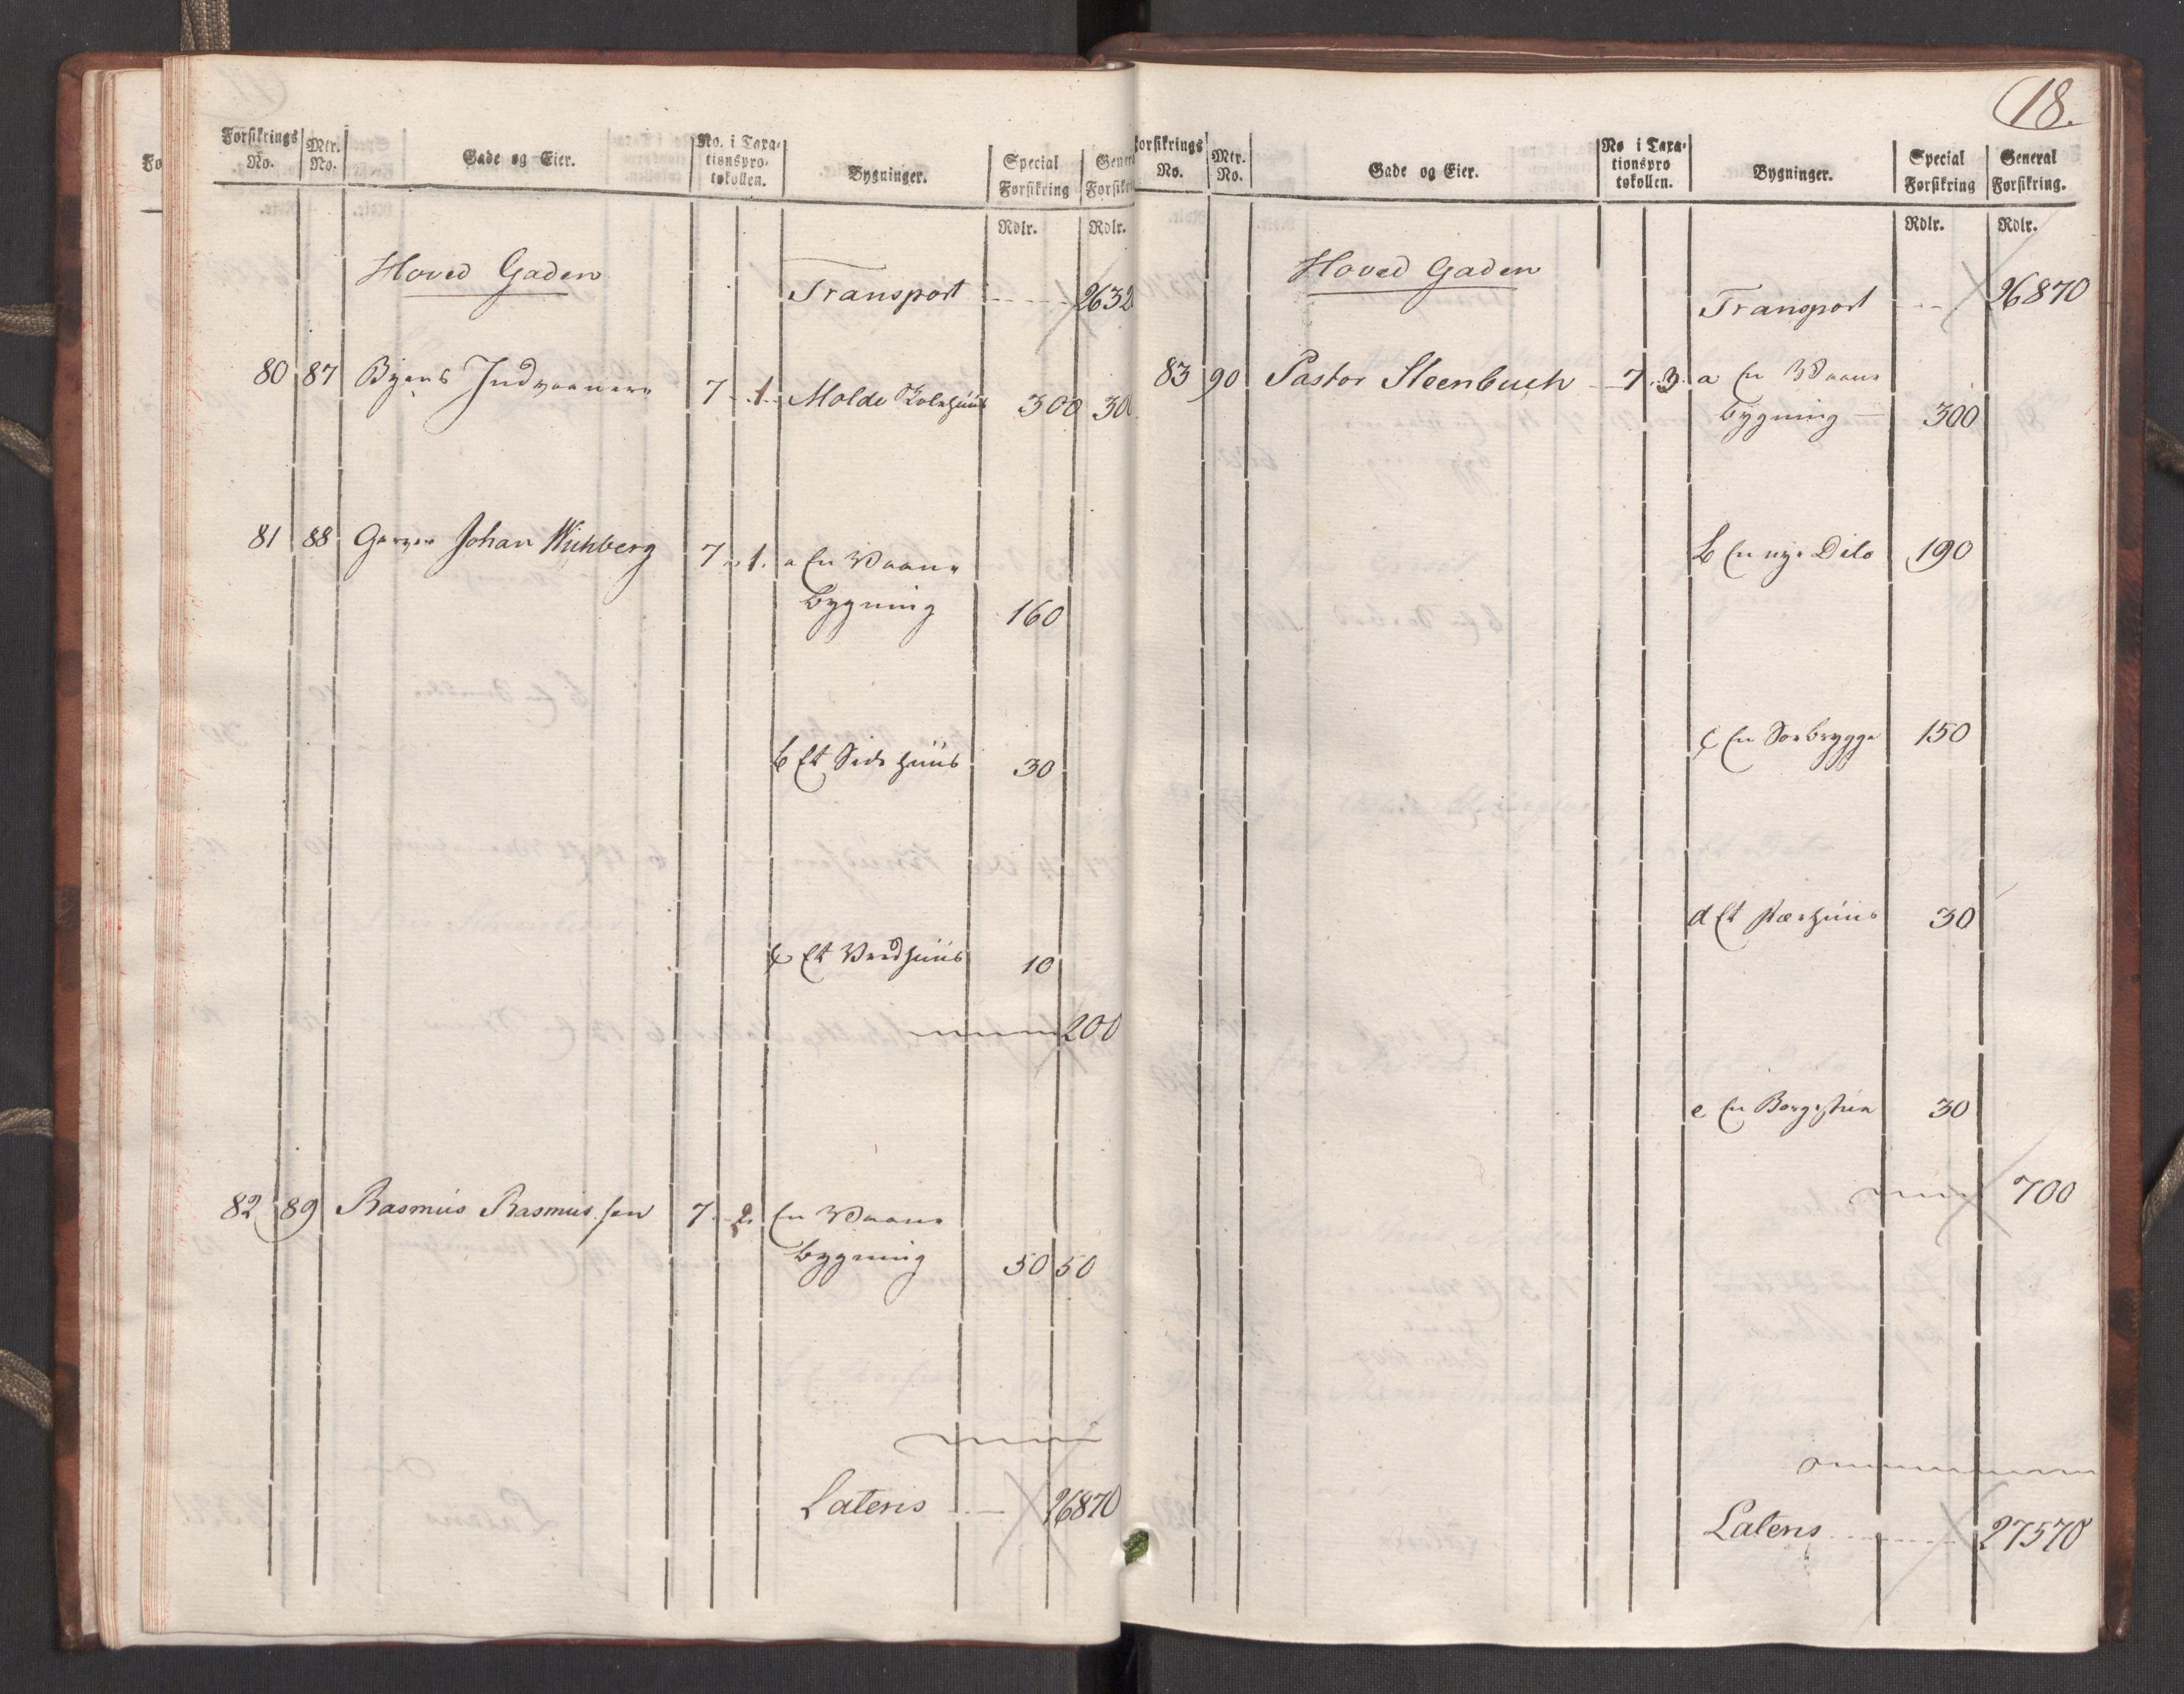 Forsikrings No.
Mtr. No.
Gade og Eier.
No. i Taxa-
tionspro-
tokollen.
Bygninger.
Special
Forsikring
Rdlr.
Rdlr.
Hoved Gaden
Transport
80 87 Byens Indvaanere 7 1. Molde 300
81 88 Garver Johan 7 1. a En Vaane
bygning 160
b Et Side Huus 30
c Et Vedhuus 10
200
82 89 Rasmus Rasmussen 7 2. En Vaane
bygning 50 50
Lateris 26870
18.
Forsikrings No.
Mtr. No.
Gade og Eier.
No i Taxa-
tionspro
tokollen.
Bygninger.
Special
Forsikring
General
Forsikring.
Rdlr.
Rdlr.
Hoved Gaden
Transport 26870
83 90 Pastor Steenbuch 7. 3. a En Vaane
bygning 300
b En nye Dito 190
c En Søebrygge 150
d Et 30
e En 30
700
Lateris 27570